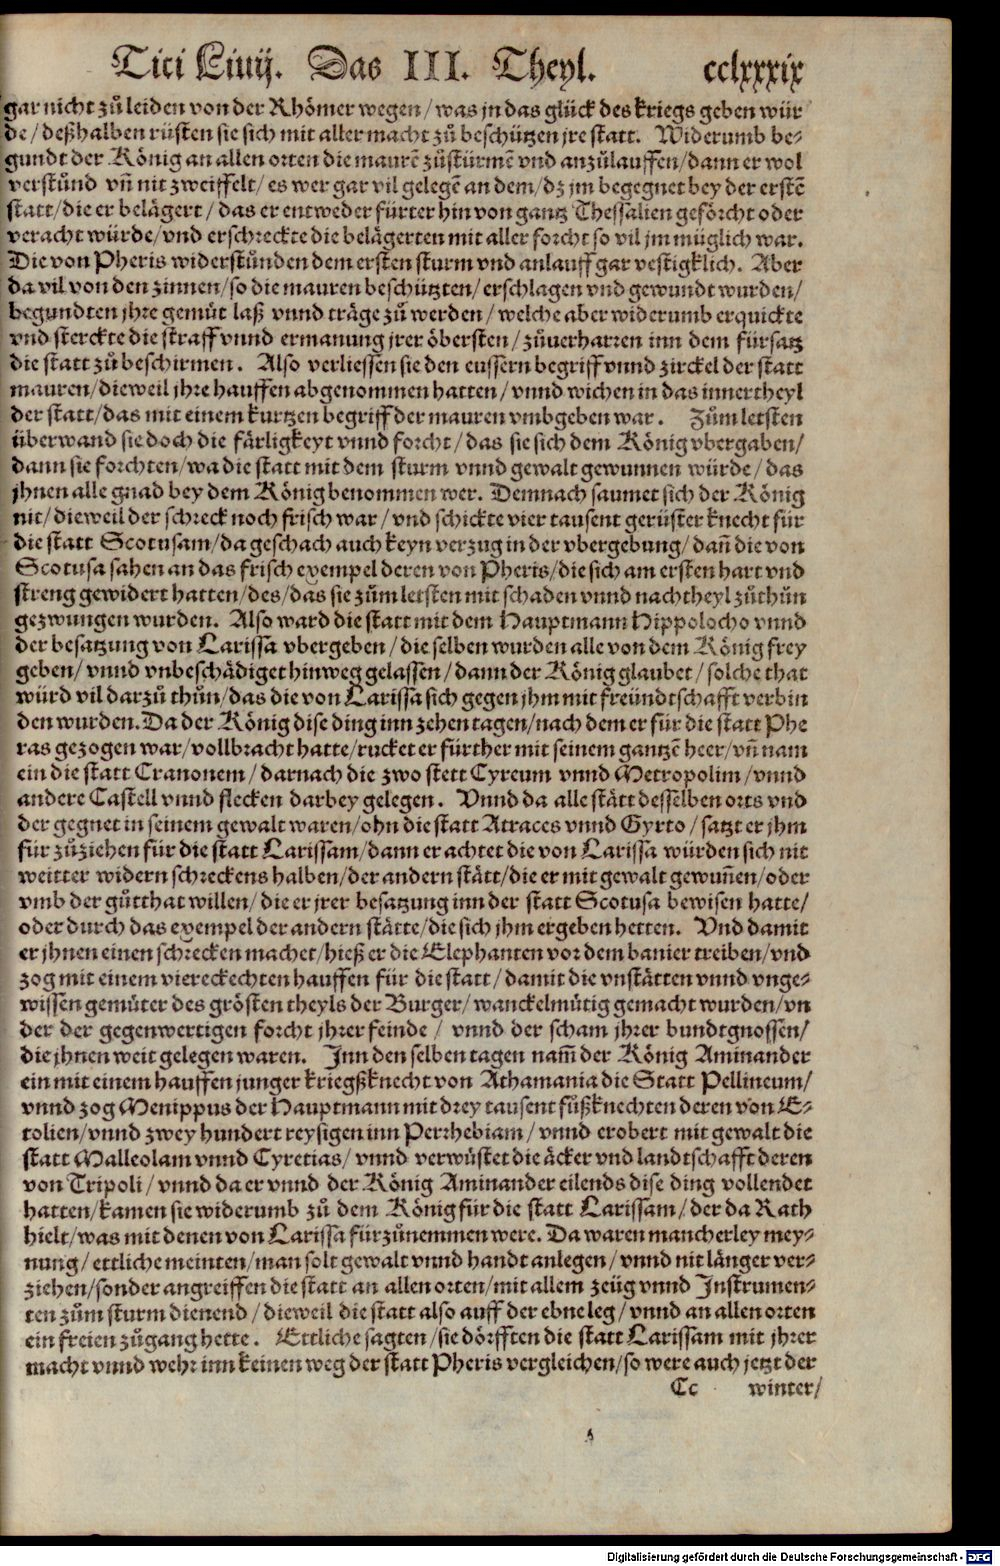 Titi Liuij. Das III. Theyl. cclxxxix
gar nicht zů leiden von der Rhömer wegen/ was jn das glück des kriegs geben wür
de/ deßhalben rüsten sie sich mit aller macht zů beschützen jre statt. Widerumb be-
gundt der König an allen orten die maurē zůstürmē vnd anzůlauffen/ dann er wol
verstůnd vñ nit zweiffelt/ es wer gar vil gelegē an dem/ dz jm begegnet bey der erstē
statt/ die er belägert/ das er entweder fürter hin von gantz Thessalien geförcht oder
veracht würde/ vnd erschreckte die belägerten mit aller forcht so vil jm müglich war.
Die von Pheris widerstůnden dem ersten sturm vnd anlauff gar vestigklich. Aber
da vil von den zinnen/ so die mauren beschützten/ erschlagen vnd gewundt wurden/
begundten jhre gemüt laß vnnd träge zů werden/ welche aber widerumb erquickte
vnd sterckte die straff vnnd ermanung jrer öbersten/ zůuerharren inn dem fürsatz
die statt zů beschirmen. Also verliessen sie den eussern begriff vnnd zirckel der statt
mauren/ dieweil jhre hauffen abgenommen hatten/ vnnd wichen in das innertheyl
der statt/ das mit einem kurtzen begriff der mauren vmbgeben war. Zům letsten
überwand sie doch die färligkeyt vnnd forcht/ das sie sich dem König vbergaben/
dann sie forchten/ wa die statt mit dem sturm vnnd gewalt gewunnen würde/ das
jhnen alle gnad bey dem König benommen wer. Demnach saumet sich der König
nit/ dieweil der schreck noch frisch war/ vnd schickte vier tausent gerüster knecht für
die statt Scotusam/ da geschach auch keyn verzug in der vbergebung/ dañ die von
Scotusa sahen an das frisch exempel deren von Pheris/ die sich am ersten hart vnd
streng gewidert hatten/ des/ das sie zům letsten mit schaden vnnd nachtheyl zůthůn
gezwungen wurden. Also ward die statt mit dem Hauptmann Hippolocho vnnd
der besatzung von Larissa vbergeben/ die selben wurden alle von dem König frey
geben/ vnnd vnbeschädiget hinweg gelassen/ dann der König glaubet/ solche that
würd vil darzů thůn/ das die von Larissa sich gegen jhm mit freündtschafft verbin
den wurden. Da der König dise ding inn zehen tagen/ nach dem er für die statt Phe
ras gezogen war/ vollbracht hatte/ rucket er fürther mit seinem gantzē heer/ vñ nam
ein die statt Cranonem/ darnach die zwo stett Cyreum vnnd Metropolim/ vnnd
andere Castell vnnd flecken darbey gelegen. Vnnd da alle stätt desselben orts vnd
der gegnet in seinem gewalt waren/ ohn die statt Atraces vnnd Gyrto/ satzt er jhm
für zůziehen für die statt Larissam/ dann er achtet die von Larissa würden sich nit
weitter widern schreckens halben/ der andern stätt/ die er mit gewalt gewuñen/ oder
vmb der gůtthat willen/ die er jrer besatzung inn der statt Scotusa bewisen hatte/
oder durch das exempel der andern stätte/ die sich jhm ergeben hetten. Vnd damit
er jhnen einen schrecken machet/ hieß er die Elephanten vor dem banier treiben/ vnd
zog mit einem viereckechten hauffen für die statt/ damit die vnstätten vnnd vnge-
wissen gemüter des grösten theyls der Burger/ wanckelmütig gemacht wurden/ vn
der der gegenwertigen forcht jhrer feinde/ vnnd der scham jhrer bundtgnossen/
die jhnen weit gelegen waren. Jnn den selben tagen nam̃ der König Aminander
ein mit einem hauffen junger kriegßknecht von Athamania die Statt Pellineum/
vnnd zog Menippus der Hauptmann mit drey tausent fůßknechten deren von E-
tolien/ vnnd zwey hundert reysigen inn Perrhebiam/ vnnd erobert mit gewalt die
statt Malleolam vnnd Cyretias/ vnnd verwüstet die äcker vnd landtschafft deren
von Tripoli/ vnnd da er vnnd der König Aminander eilends dise ding vollendet
hatten/ kamen sie widerumb zů dem König für die statt Larissam/ der da Rath
hielt/ was mit denen von Larissa fürzůnemmen were. Da waren mancherley mey-
nung/ ettliche meinten/ man solt gewalt vnnd handt anlegen/ vnnd nit länger ver-
ziehen/ sonder angreiffen die statt an allen orten/ mit allem zeüg vnnd Jnstrumen-
ten zům sturm dienend/ dieweil die statt also auff der ebne leg/ vnnd an allen orten
ein freien zůgang hette. Ettliche sagten/ sie dörfften die statt Larissam mit jhrer
macht vnnd wehr inn keinen weg der statt Pheris vergleichen/ so were auch jetzt der
Cc winter/
Digitalisierung gefördert durch die Deutsche Forschungsgemeinschaft - DFG